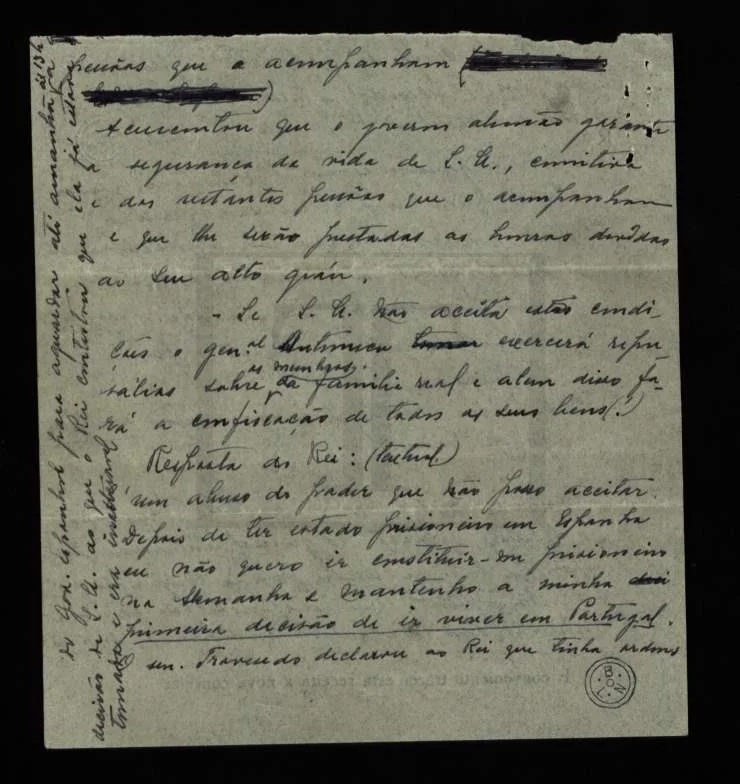 pessôas que o acompanham (
)
Acrescentou que o governo alemão garante
a segurança da vida de S. M., comitiva
e das restantes pessôas que o acompanham
e que lhe serão prestadas as honras devidas
ao seu alto gráu.
- Se S. M. não aceita estas condi-
ções o gen.al Antonescu exercerá repre-
sálias sobre os membros da familia real e alem disso fa-
rá a confiscação de todos os seus bens (!)
Resposta do Rei: (textual)
É um abuso do poder que não posso aceitar.
Depois de ter estado prisioneiro em Espanha
eu não quero ir constituir-me prisioneiro
na Alemanha e mantenho a minha
primeira decisão de ir viver em Portugal.
sen. Travesedo declarou ao Rei que tinha ordens
do Gov. espanhol para aguardar até amanhã ás 13 h a
decisão de S. M. ao que o Rei contestou que ela já estava
tomada e era
B O N L